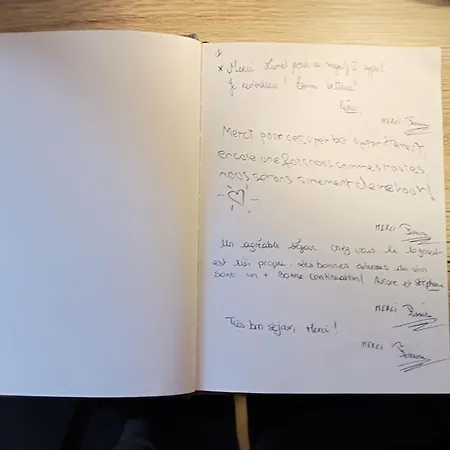 * Merci pour ce
Je reviendrai ! Bonne
MERCI
Merci pour ce super be appartement,
encore une fois nous sommes ravies,
nous serons surement de retour !
MERCI
Un agréable séjour chez vous. le logement
est très propre. Les bonnes adresses du coin
sont un + Bonne continuation ! Aurore et Stéphane
MERCI
Très bon séjour, Merci !
MERCI